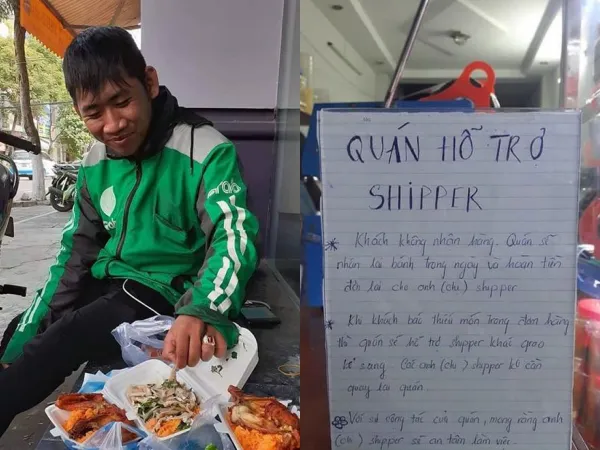 Grab
QUÁN HỖ TRỢ
SHIPPER
* Khách không nhận hàng. Quán sẽ
nhận lại bánh trong ngày và hoàn tiền
đơn lại cho anh (chị) shipper
* Khi khách báo thiếu món trong đơn hàng
thì quán sẽ hỗ trợ shipper khác giao
bổ sang. Các anh (chị) shipper kô cần
quay lại quán.
Với sự cộng tác của quán, mong rằng anh
(chị) shipper sẽ an tâm làm việc